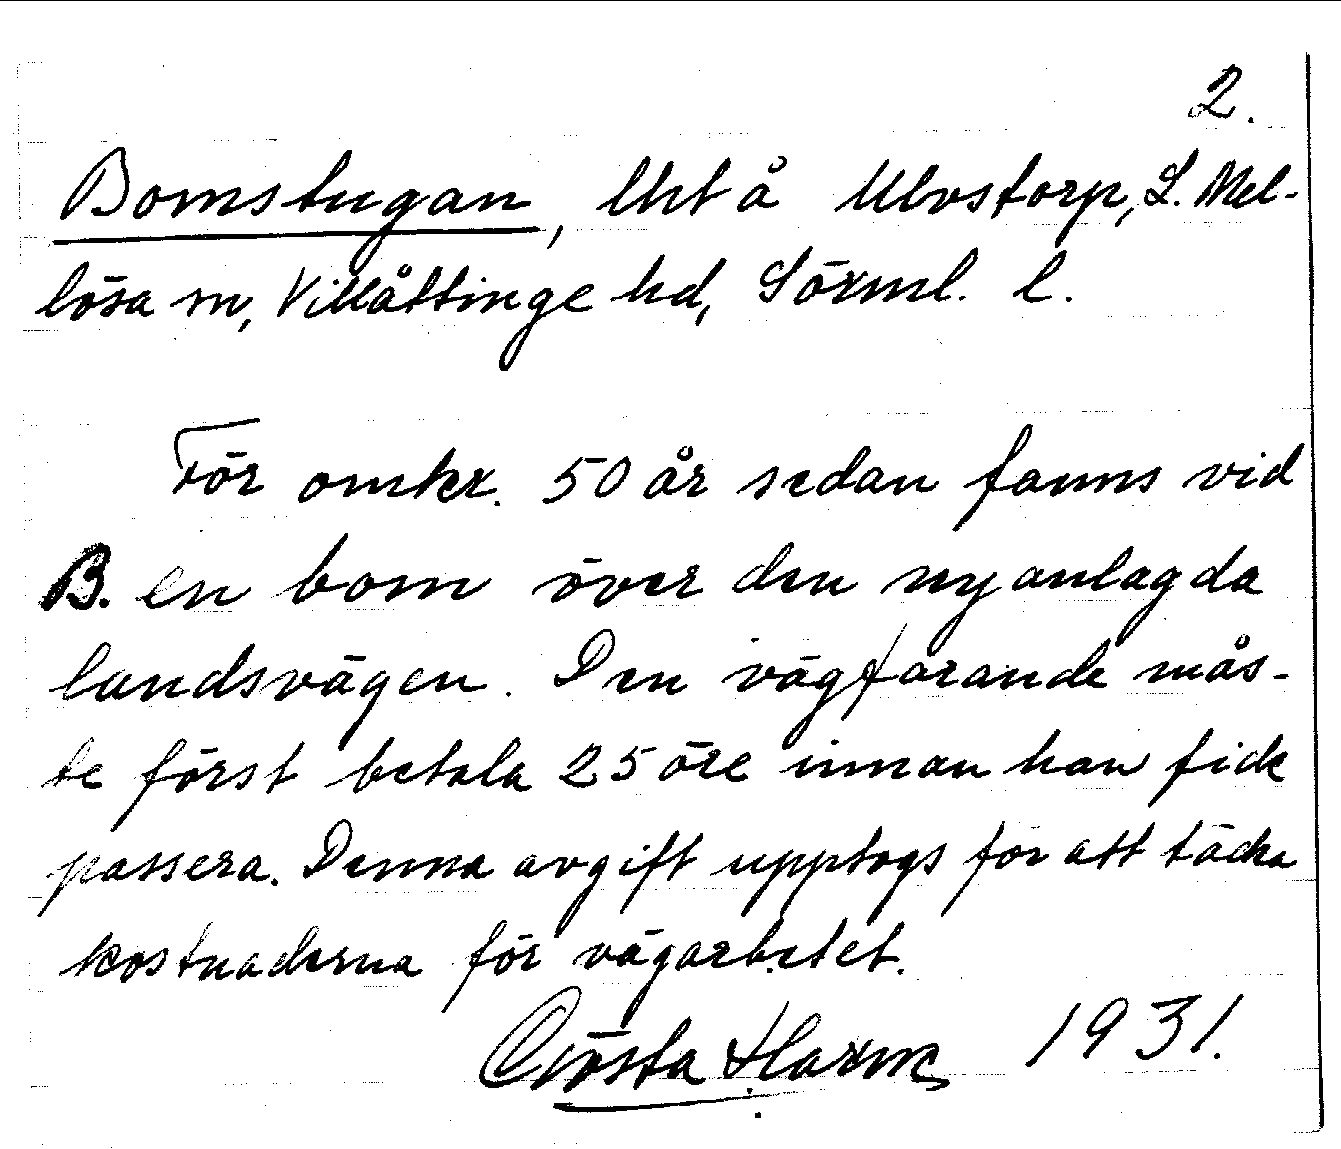 2.
Bomstugan, lht å Ulvstorp, L. Mel-
lösa sn, Villåttinge hd, Sörml. l.
För omkr. 50 år sedan fanns vid
B. en bom över den nyanlagda
landsvägen. Den vägfarande mås-
te först betala 25 öre innan han fick
passera. Denna avgift upptogs för att täcka
kostnaderna för vägarbetet.
Gösta 1931.